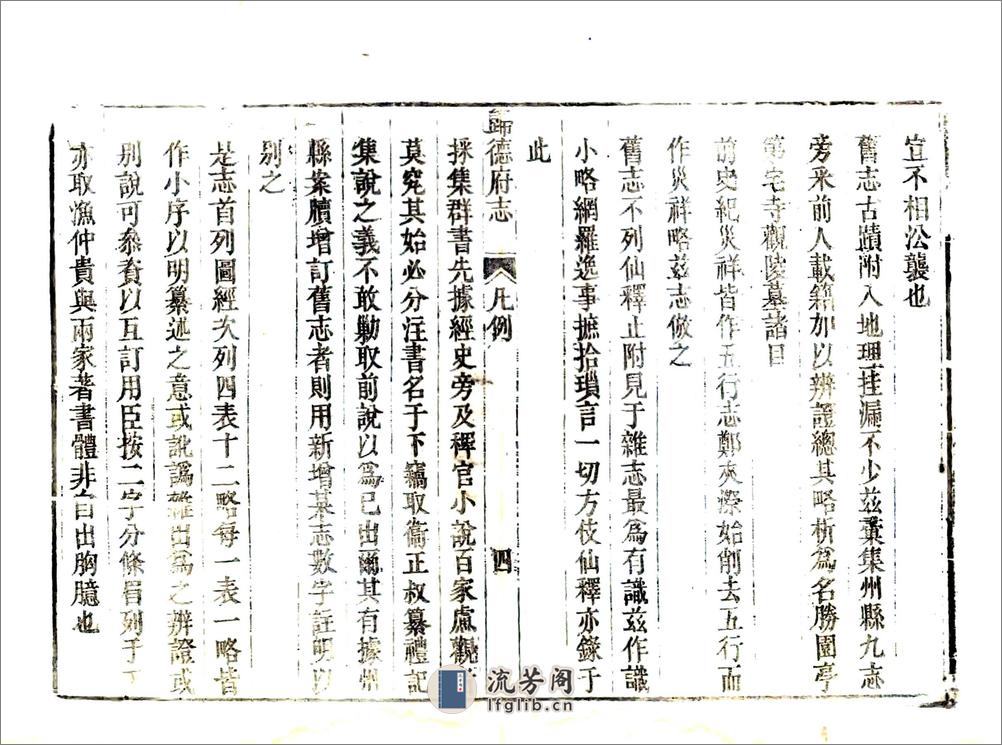 宜不相沿襲也
舊志古蹟附入地理挂漏不少茲彙集州縣九志
旁采前人載籍加以辨證總其略析爲名勝園亭
第宅寺觀陵墓諸目
前史紀災祥皆作五行志鄭夾漈始削去五行而
作災祥略茲志倣之
舊志不列仙釋止附見于雜志最爲有識茲作識
小略網羅逸事摭拾瑣言一切方伎仙釋亦錄于
此
歸德府志
凡例
四
採集群書先據經史旁及稗官小說百家慮觀
莫究其始必分注書名于下竊取衞正叔纂禮記
集說之義不敢勦取前說以爲已出爾其有據州
縣案牘增訂舊志者則用新增某志數字註明以
别之
是志首列圖經次列四表十二略每一表一略皆
作小序以明纂述之意或訛譌雜出爲之辨證或
别說可叅資以互訂用臣按二字分條眉列于
亦取漁仲貴與兩家著書體非自出胸臆也
流芳阁
lfglib.cn